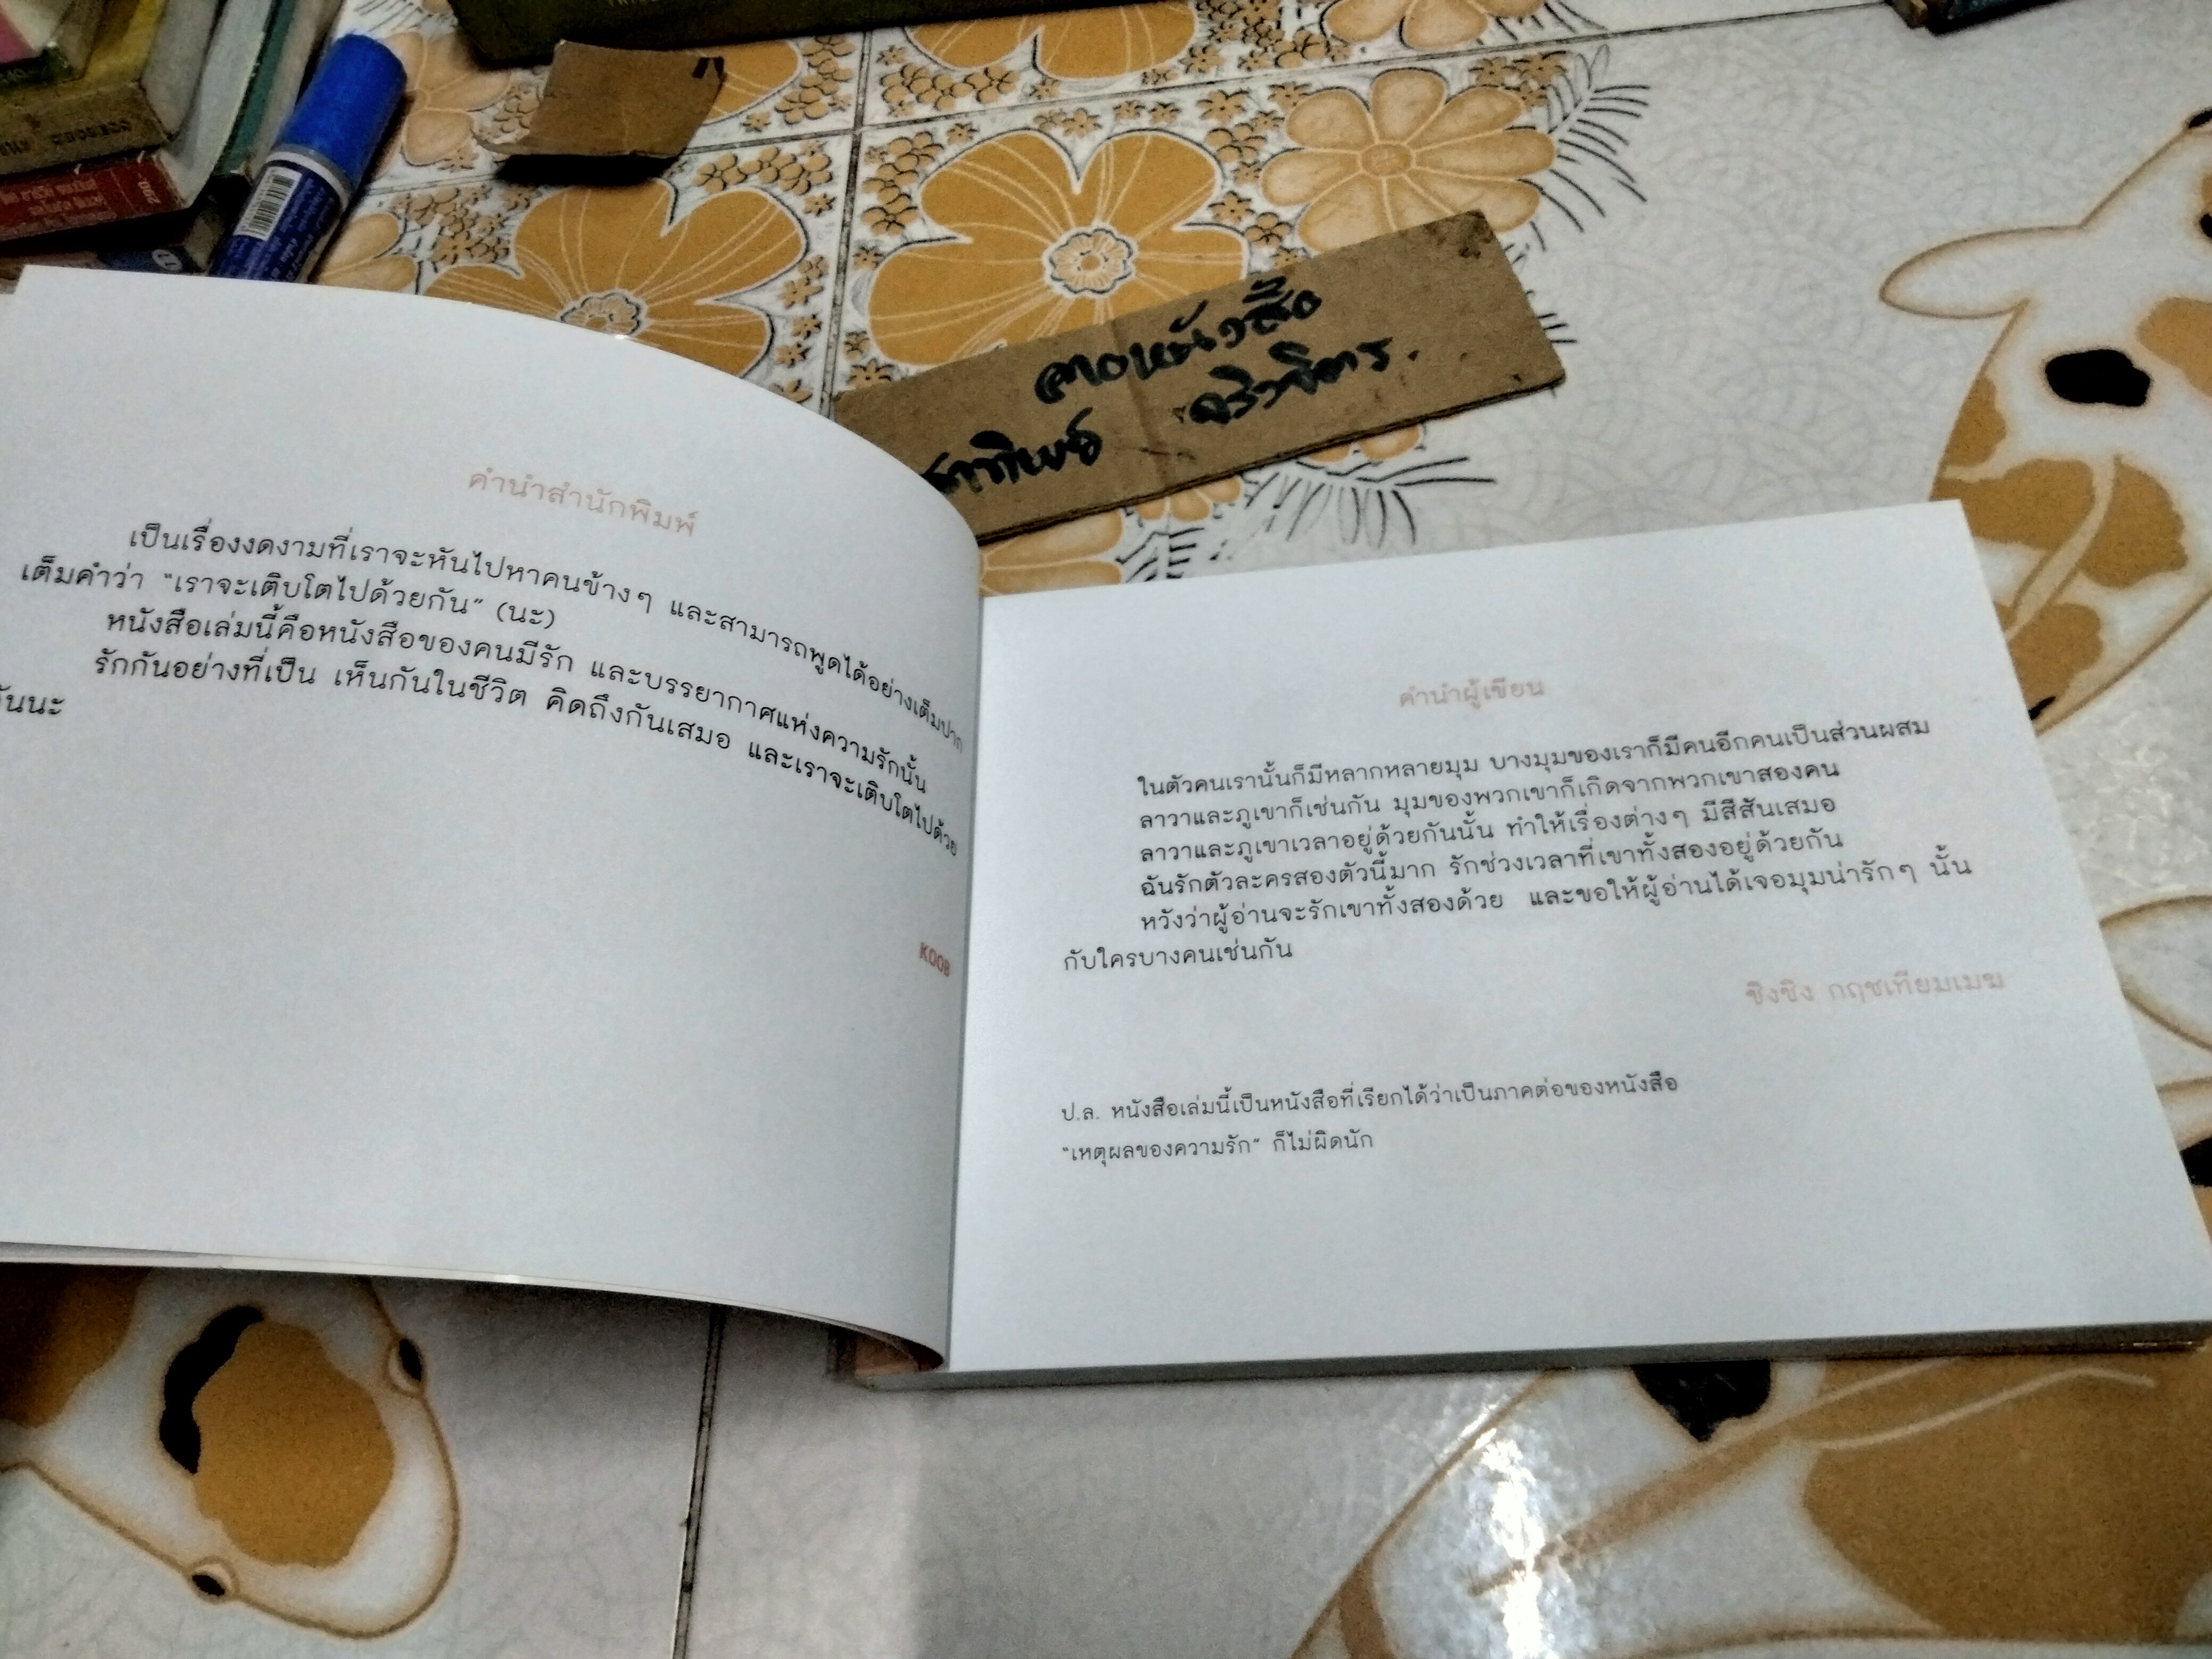 คำนำสำนักพิมพ์
เป็นเรื่องงดงามที่เราจะหันไปหาคนข้างๆ และสามารถพูดได้อย่างเต็มปาก
เต็มคำว่า "เราจะเติบโตไปด้วยกัน" (นะ)
หนังสือเล่มนี้คือหนังสือของคนมีรัก และบรรยากาศแห่งความรักนั้น
รักกันอย่างที่เป็น เห็นกันในชีวิต คิดถึงกันเสมอ และเราจะเติบโตไปด้วย
กันนะ
KOOB
คำนำผู้เขียน
ในตัวคนเรานั้นก็มีหลากหลายมุม บางมุมของเราก็มีคนอีกคนเป็นส่วนผสม
ลาวาและภูเขาก็เช่นกัน มุมของพวกเขาก็เกิดจากพวกเขาสองคน
ลาวาและภูเขาเวลาอยู่ด้วยกันนั้น ทำให้เรื่องต่างๆ มีสีสันเสมอ
ฉันรักตัวละครสองตัวนี้มาก รักช่วงเวลาที่เขาทั้งสองอยู่ด้วยกัน
หวังว่าผู้อ่านจะรักเขาทั้งสองด้วย และขอให้ผู้อ่านได้เจอมุมน่ารักๆ นั้น
กับใครบางคนเช่นกัน
ชิงชิง กฤชเทียมเมฆ
ป.ล. หนังสือเล่มนี้เป็นหนังสือที่เรียกได้ว่าเป็นภาคต่อของหนังสือ
"เหตุผลของความรัก" ก็ไม่ผิดนัก